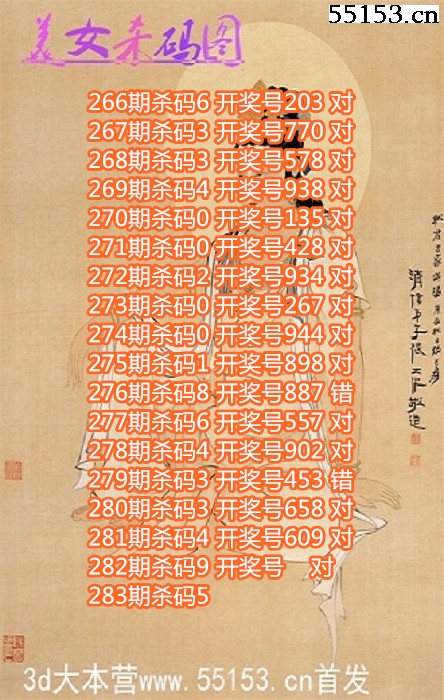 55153.cn
美女杀码图
266期杀码6 开奖号203 对
267期杀码3 开奖号770 对
268期杀码3 开奖号578 对
269期杀码4 开奖号938 对
270期杀码0 开奖号135 对
271期杀码0 开奖号428 对
272期杀码2 开奖号934 对
273期杀码0 开奖号267 对
274期杀码0 开奖号944 对
275期杀码1 开奖号898 对
276期杀码8 开奖号887 错
277期杀码6 开奖号557 对
278期杀码4 开奖号902 对
279期杀码3 开奖号453 错
280期杀码3 开奖号658 对
281期杀码4 开奖号609 对
282期杀码9 开奖号 对
283期杀码5
3d大本营www.55153.cn首发